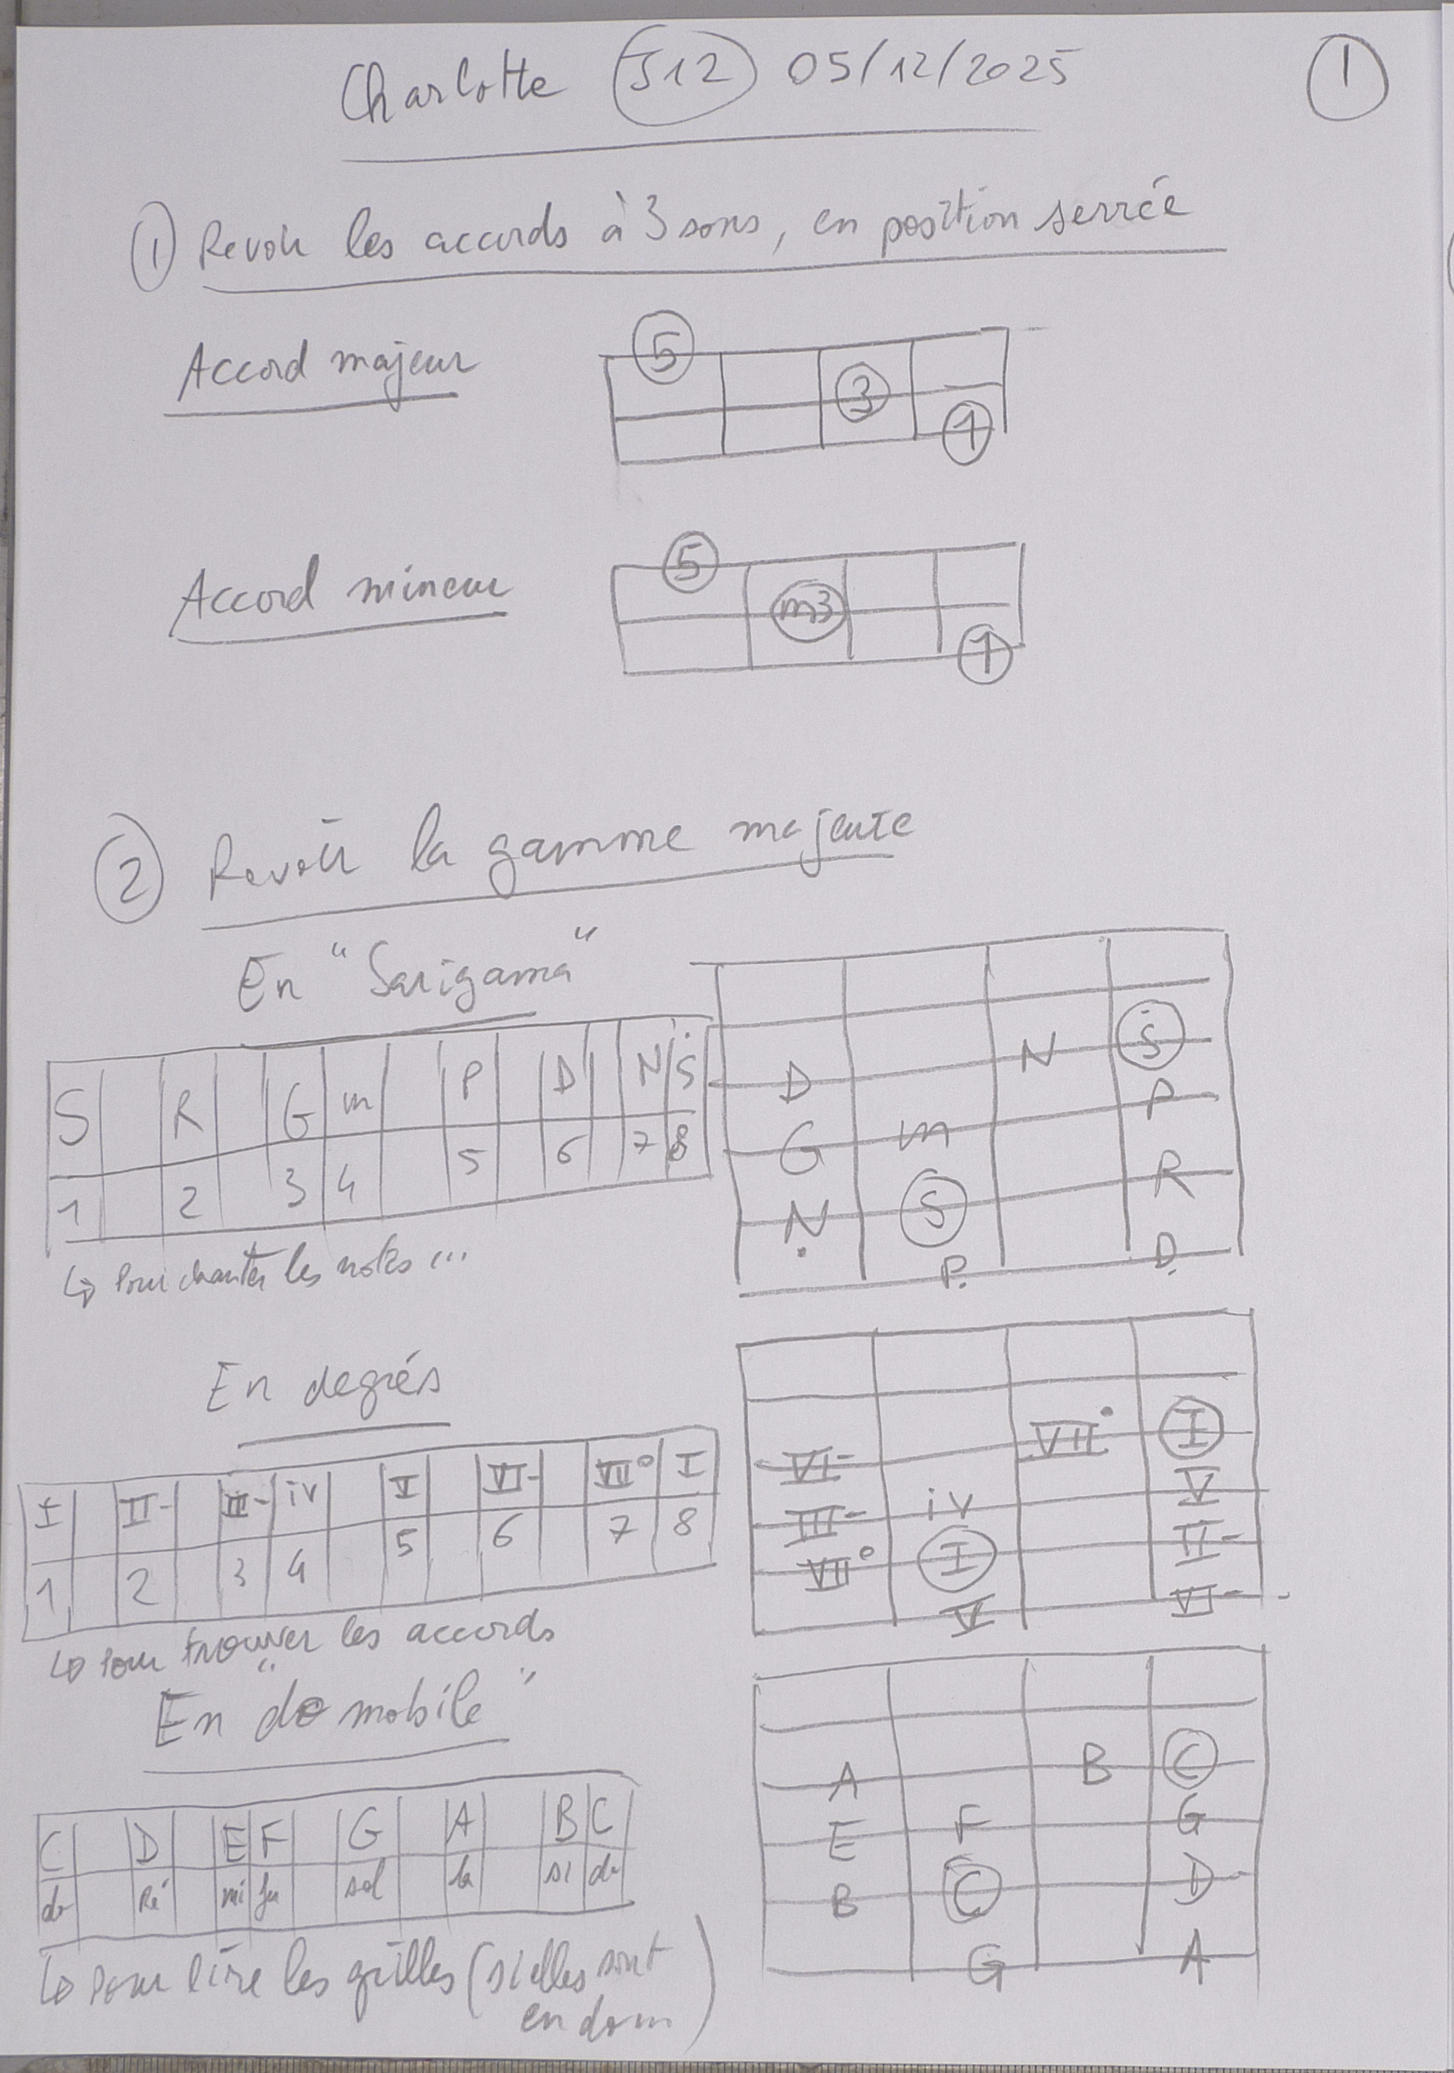 Charlotte S12 05/12/2025
1
1 Revoir les accords à 3 sons, en position serrée
Accord majeur
5
3
1
Accord mineur
5
m3
1
2 Revoir la gamme majeure
En "Sarigama"
S R G m P D N Ṡ
1 2 3 4 5 6 7 8
↳ Pour chanter les notes...
N Ṡ
D P
G m R
Ṇ S Ḍ
P.
En degrés
I II- III- iv V VI- VII° I
1 2 3 4 5 6 7 8
↳ Pour trouver les accords
VII° I
VI- V
III- iv II-
VII° I VI-
V
En "do mobile"
C D E F G A B C
do Ré mi fa sol la si do
↳ Pour lire les grilles (si elles sont
en dom)
A B C
E F G
B C D
G A